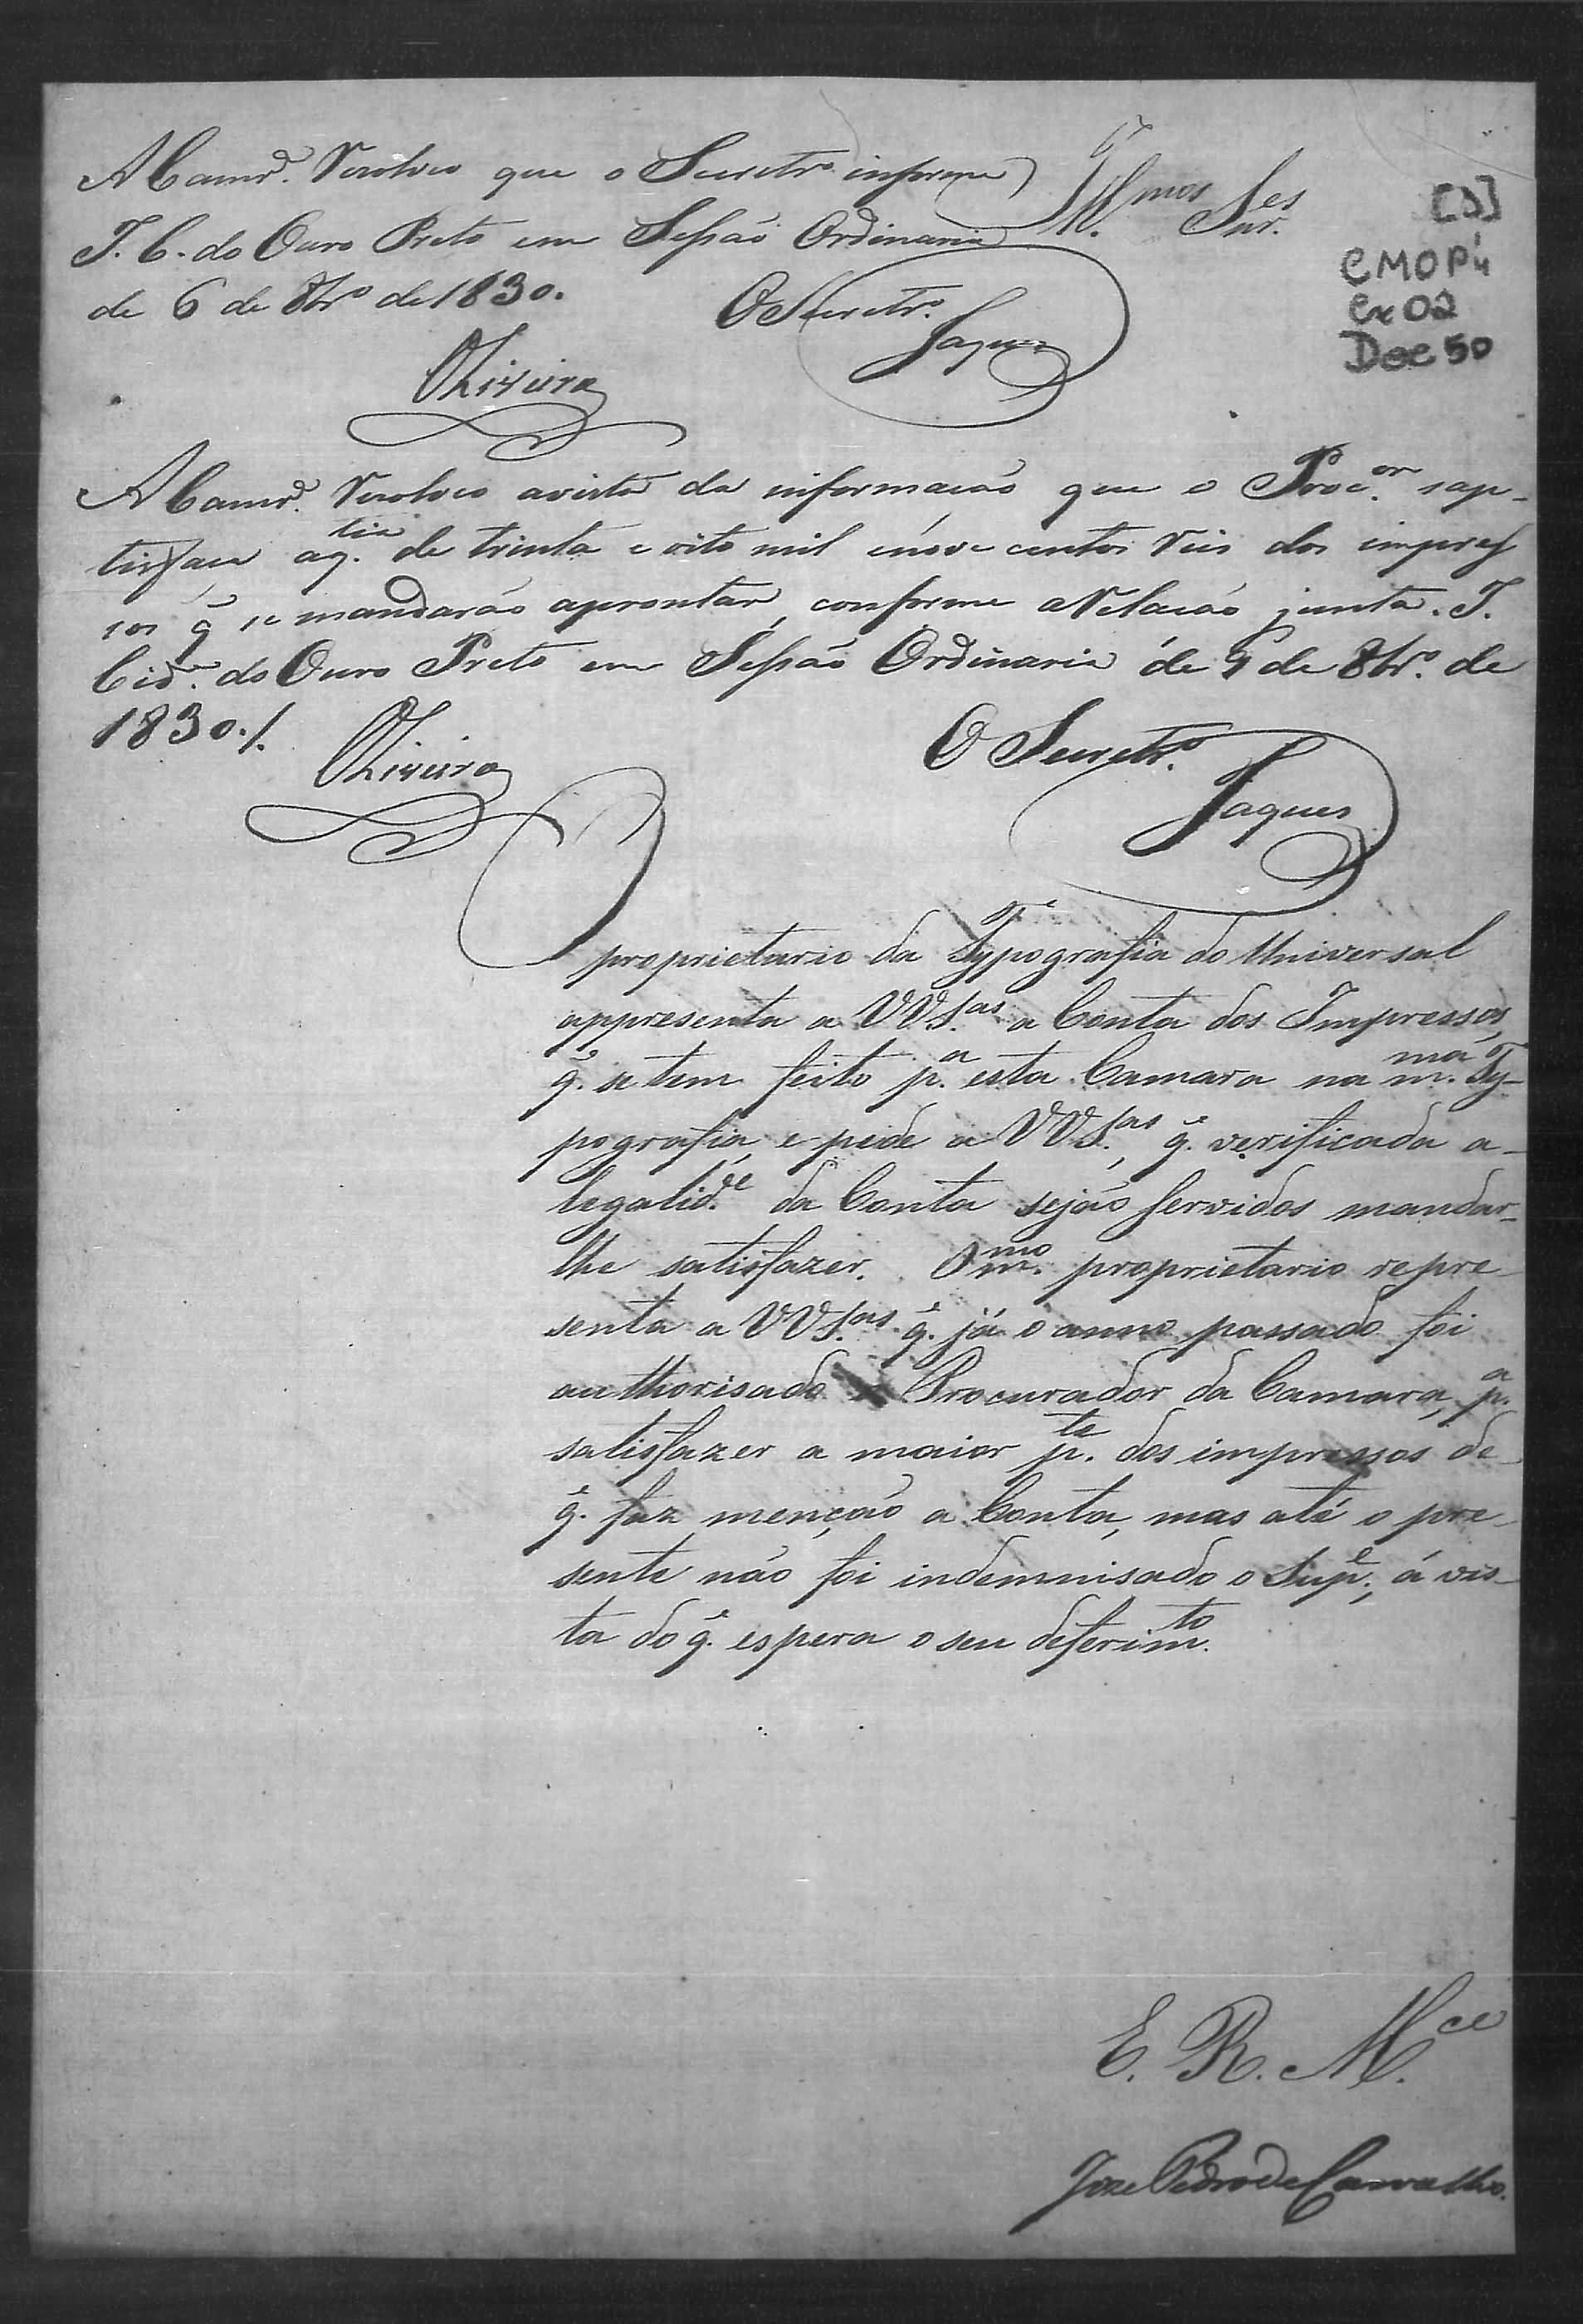 A Camr.ª Resolveo que o Secretr.º informe
Ill.mos Snr.es
I. C. do Ouro Preto em Sessão Ordinaria
de 6 de 8br.º de 1830.
O Secretr.º
Jaques
Oliveira
[3]
CMOP 4
Cx 02
Doc 50
A Camr.ª Resolveo avista da informação que o Proc.or sap-
tisfaça a q.tia de trinta e oito mil e nove centos reis dos impres
sos q̃ se mandarão aprontar, conforme a Relação junta. I.
Cid.e do Ouro Preto em Sessão Ordinaria de 9 de 8br.º de
1830./.
O Secretr.º
Oliveira
Jaques
O proprietario da Typografia do Universal
appresenta a VVS.as a Conta dos Impressos,
q̃. se tem feito p.a esta Camara na m.ma Ty-
pografia, e pede a VVS.as, q̃. verificada a
legalid.e da Conta sejão servidos mandar-
lhe satisfazer. O m.mo proprietario repre-
senta a VVS.as q̃. já o anno passado foi
authorisado o Procurador da Camara, p.a
satisfazer a maior p.te dos impressos de
q̃. faz menção a Conta, mas até o pre-
sente não foi indemnisado o Sup.e, á vis-
ta do q̃. espera o seu deferim.to
E. R. M.ce
Joze Pedro de Carvalho.